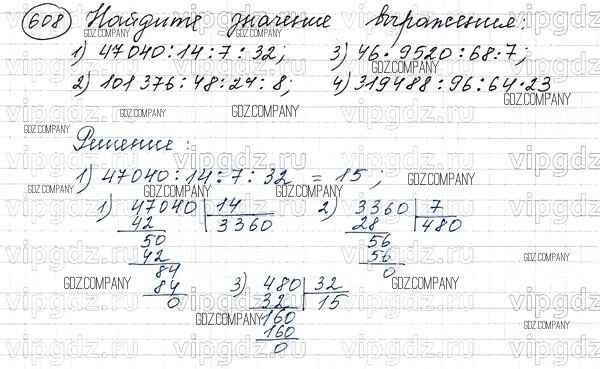 608 Найдите значение выражения:
1) 47040:14:7:32; 3) 46·9520:68:7;
2) 101 376:48:24:8; 4) 319488:96:64·23
Решение:
1) 47040:14:7:32 = 15;
1) 47040 14 2) 3360 7
42 3360 28 480
50 56
42 56
84 0
84
0
3) 480 32
32 15
160
160
0
GDZ.COMPANY
vipgdz.ru